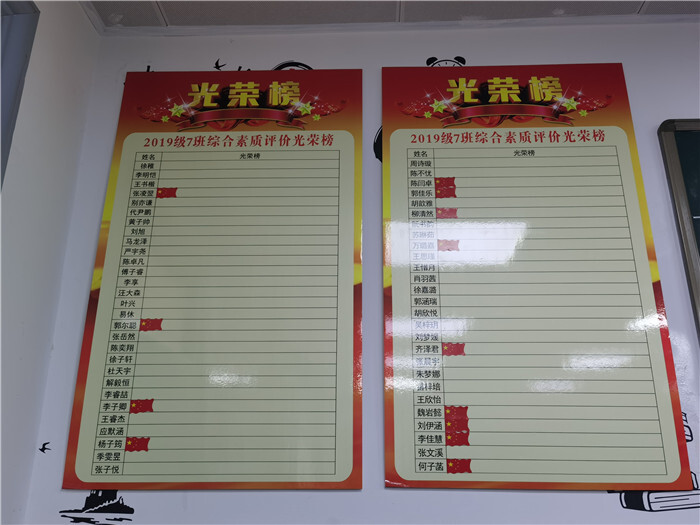 光荣榜
2019级7班综合素质评价光荣榜
姓名 光荣榜
徐稚
李明恺
王书根
张凌翌
别亦谦
代尹鹏
黄子帅
刘旭
马龙泽
严宇尧
陈卓凡
傅子睿
李享
汪大森
叶兴
易休
郭尔聪
张岳然
陈奕翔
徐子轩
杜天宇
解毅恒
李睿喆
李子卿
王睿杰
应默涵
杨子筠
季雯昱
张子悦
光荣榜
2019级7班综合素质评价光荣榜
姓名 光荣榜
周诗璇
陈不忧
陈闫卓
郭佳乐
胡歆雅
柳清然
王惜月
肖羽茜
徐嘉潞
郭涵瑞
胡欣悦
吴梓玥
刘梦媛
齐泽君
张晨宇
朱梦娜
王欣怡
魏岩懿
刘伊涵
李佳慧
张文溪
何子菡